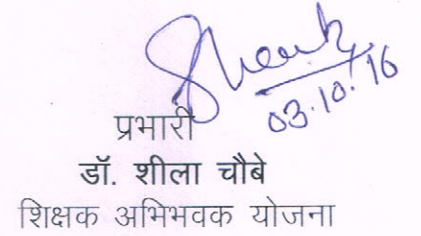 03.10.16
प्रभारी
डॉ. शीला चौबे
शिक्षक अभिभवक योजना